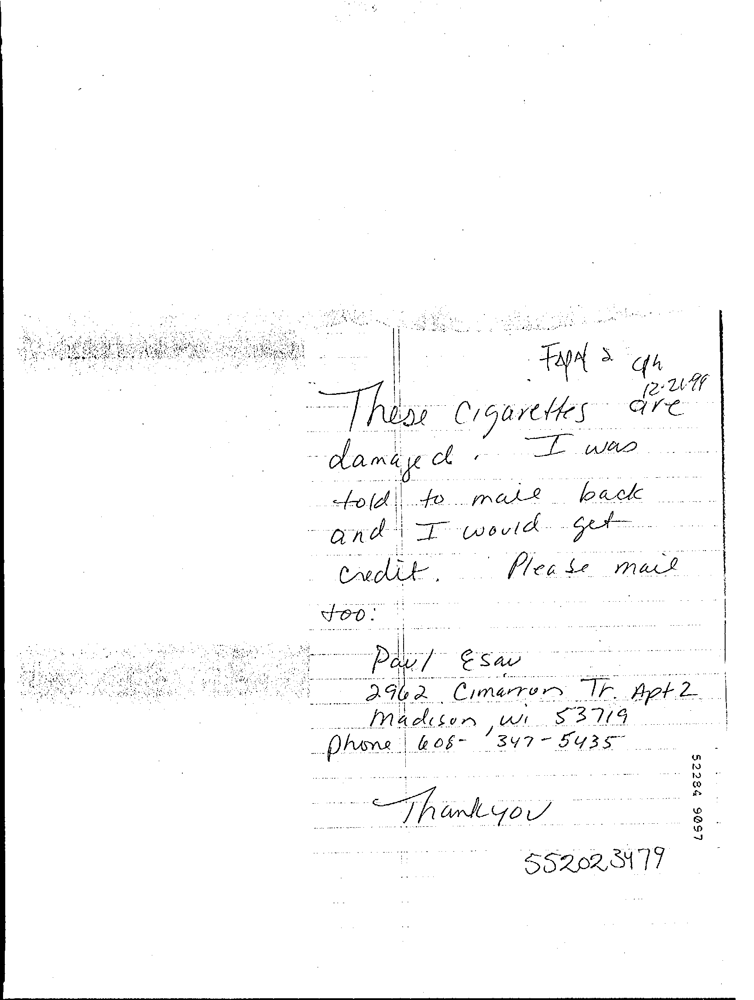 12-21-99
These cigarettes are
damaged. I was
told to mail back
and I would get
credit. Please mail
too:
Paul Esau
2962 Cimarron Tr. Apt 2
Madison, Wi 53719
phone 608-347-5435
Thankyou
552023479
52284 9097